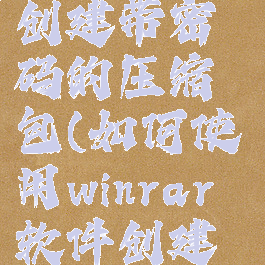 创建带密
码的压缩
包(如何使
用winrar
软件创建